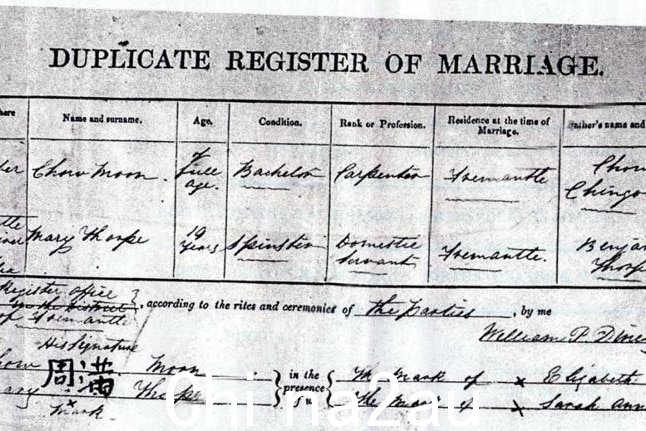 DUPLICATE REGISTER OF MARRIAGE.
Name and surname. Age. Condition. Rank or Profession. Residence at the time of Marriage. Father's name and
Chow Moon. of Full age. Bachelor Carpenter Fremantle Chow Chingo
Mary Thorpe 19 Years Spinster Domestic Servant Fremantle. Benja Thorp
Register office
in the District
of Fremantle
, according to the rites and ceremonies of the Parties , by me
William P Dime
His Signature
how 周 Moon in the presence of us The Mark of x Elizabeth
ary x Thorpe The Mark of x Sarah Ann
Mark.
China2au